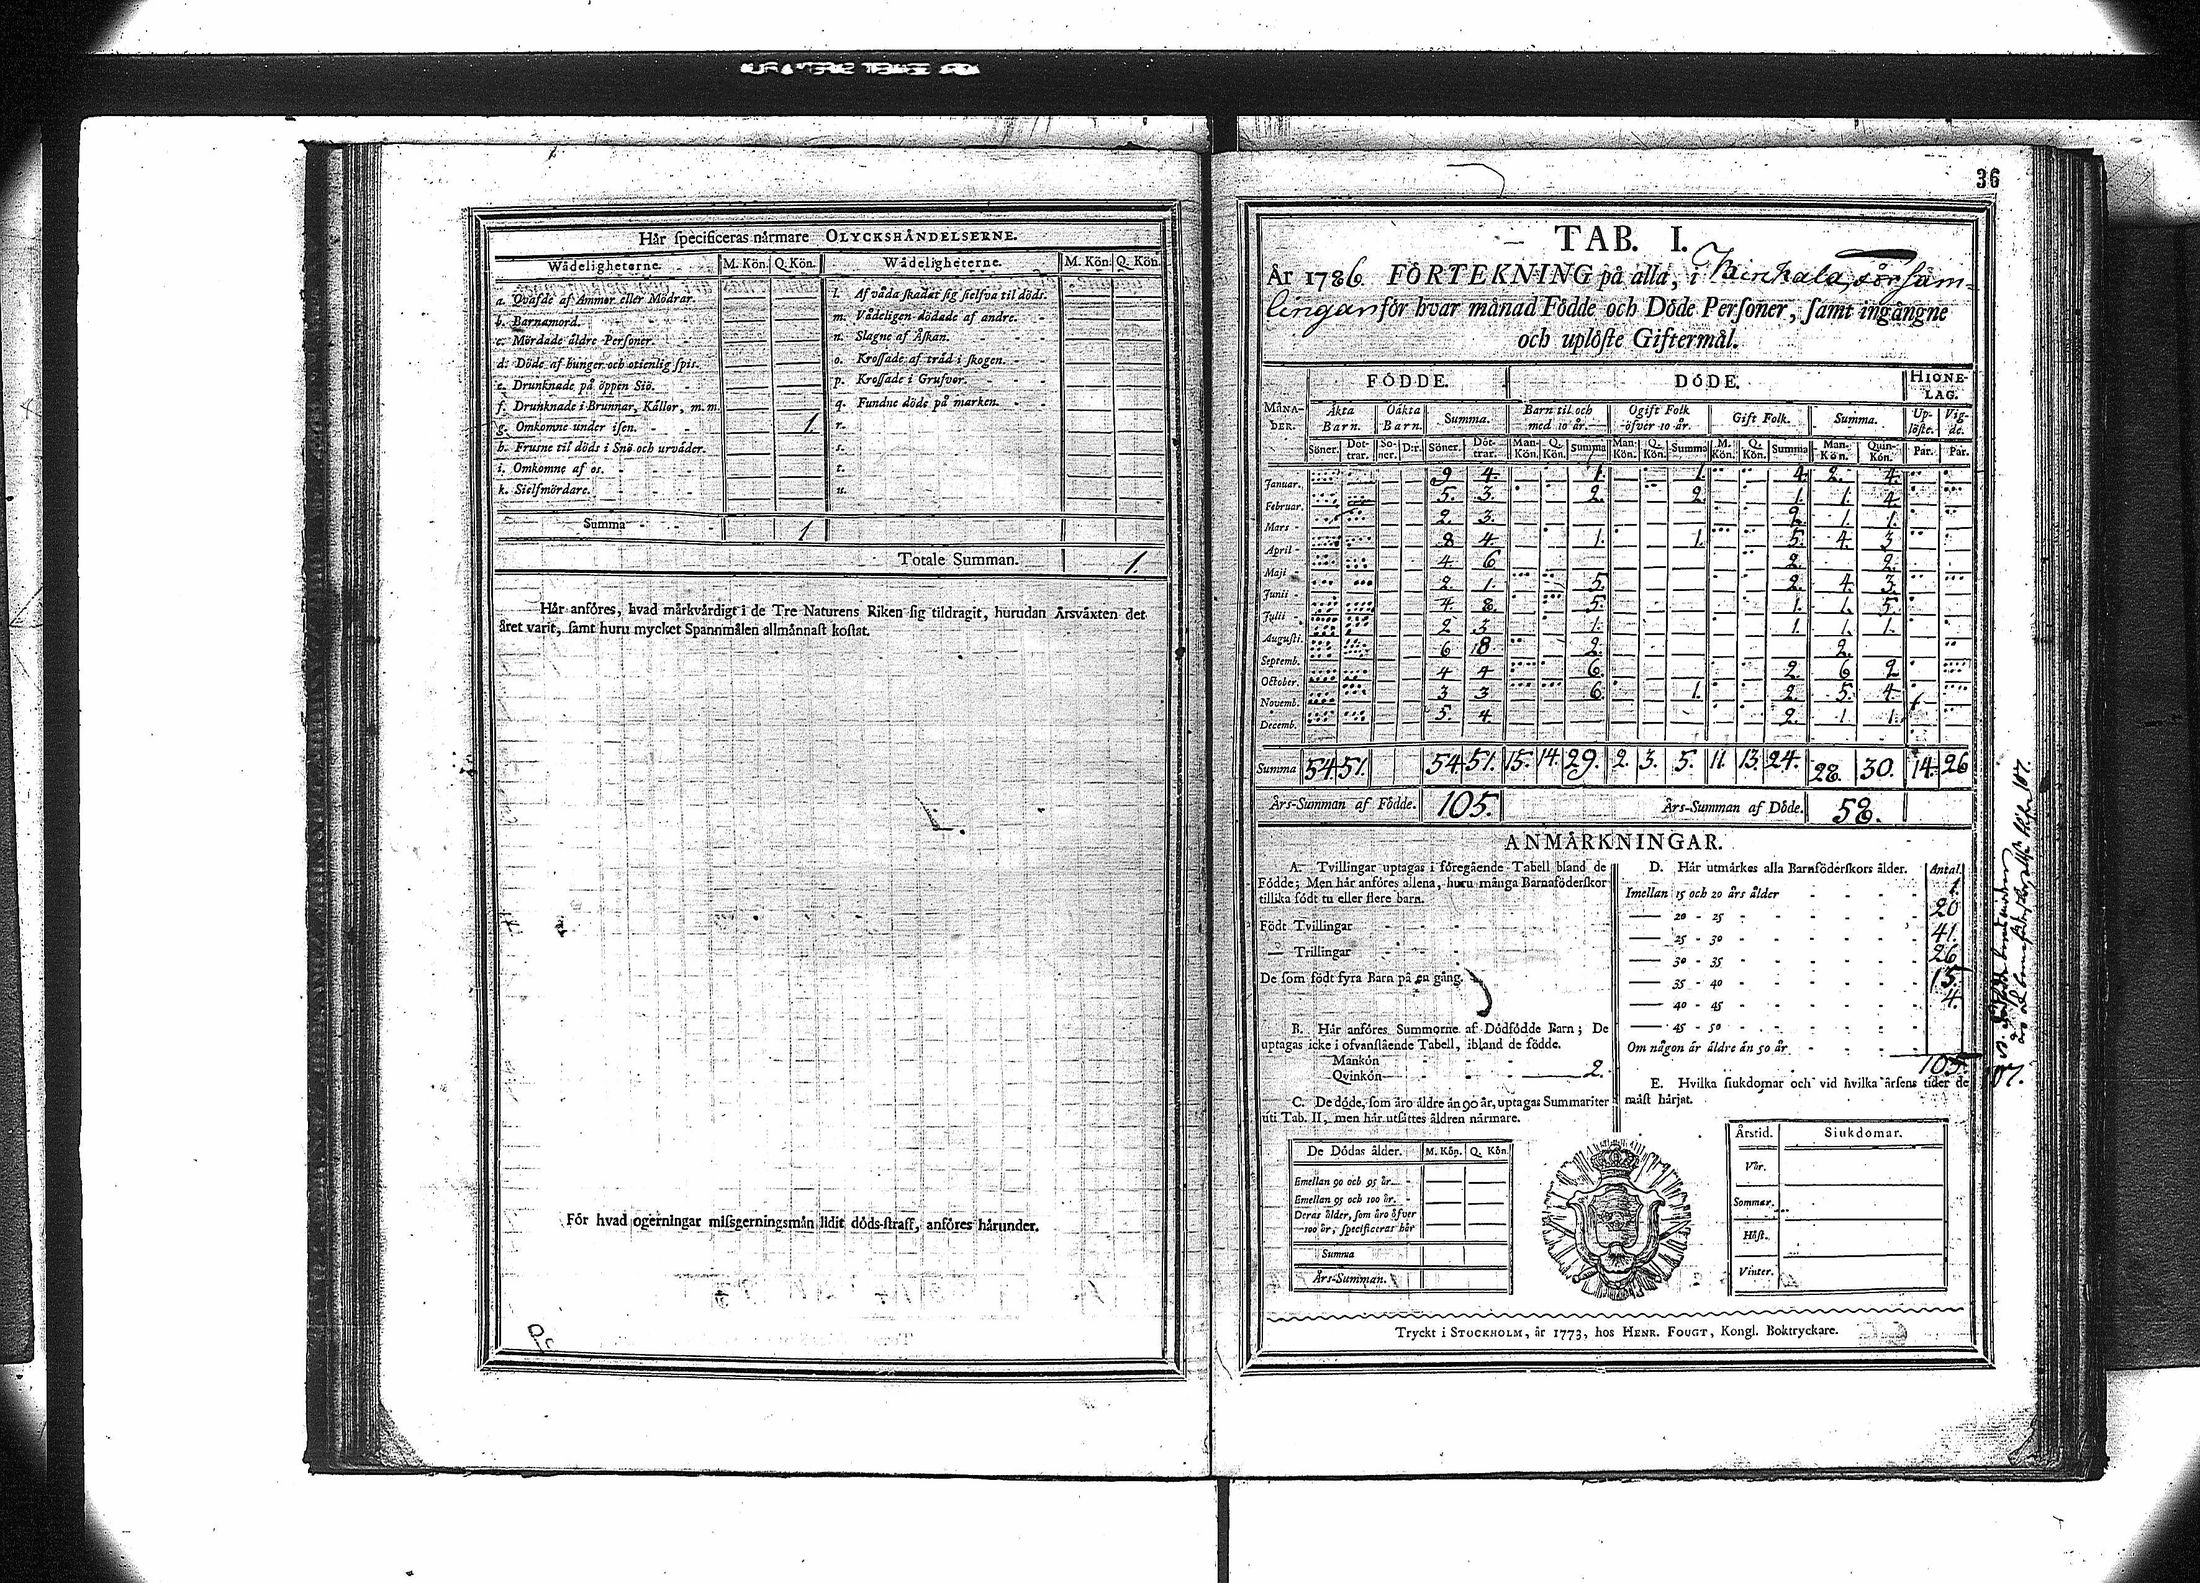 Hår specificeras nårmare OLYCKSHÅNDELSERNE.
Wådeligheterne. M. Kön. Q. Kön. Wådeligheterne. M. Kön. Q. Kön.
a. Qvafde af Ammor eller Mödrar. l. Af våda skadat sig sielfva til döds.
b. Barnamord. m. Vådeligen dödade af andre.
c. Mördade åldre Personer. n. Slagne af Åskan.
d. Döde af hunger och otienlig spis. o. Krossade af tråd i skogen.
e. Drunknade på öppen Siö. p. Krossade i Grufvor.
f. Drunknade i Brunnar, Kållor, m.m. q. Fundne döde på marken.
g. Omkomne under isen. 1. r.
h. Frusne til döds i Snö och urvåder. s.
i. Omkomne af os. t.
k. Sielfmördare. u.
Summa 1
Totale Summan. 1
Hår anföres, hvad mårkvårdigt i de Tre Naturens Riken sig tildragit, hurudan Årsvåxten det
året varit, samt huru mycket Spannmålen allmånnast kostat.
För hvad ogerningar missgerningsmån lidit döds-straff, anföres hårunder.
36
TAB. I.
År 1786. FÖRTEKNING på alla, i församlingan
för hvar månad Födde och Döde Personer, samt ingångne
och uplöste Giftermål.
MÅNADER. FÖDDE. DÖDE. HIONELAG.
Åkta Barn. Oåkta Barn. Summa. Barn til och med 10 år. Ogift Folk öfver 10 år. Gift Folk. Summa. Uplöste. Vigde.
Söner. Dottrar. Soner. D:r. Söner. Döttrar. Man-Kön. Q. Kön. Summa Man-Kön. Q. Kön. Summa M. Kön. Q. Kön. Summa Man-Kön. Quin-Kön. Par. Par.
Januar. 9 4. 1. 1. 4. 2. 4.
Februar. 5. 3. 2. 2. 1. 1. 4.
Mars 2. 3. 2. 1. 1.
April 8 4. 1. 1. 5. 4. 3
Maji 4. 6 2. 2.
Junii 2. 1. 5. 2. 4. 3.
Julii 4. 8. 5. 1. 1. 5.
Augusti. 2 3 1. 1. 1. 1.
Septemb. 6 2. 2.
October. 4 4 6. 2. 6 2
Novemb. 3 3 6. 1. 2. 5. 4.
Decemb. 5. 4. 2. 1. 1.
Summa 54 51. 54 51. 15. 14. 29. 2. 3. 5. 11. 13. 24. 28. 30. 14. 26
Års-Summan af Födde. 105. Års-Summan af Döde. 58.
ANMÅRKNINGAR.
A. Tvillingar uptagas i föregående Tabell bland de
Födde; Men hår anföres allena, huru många Barnaföderskor
tillika födt tu eller flere barn.
Födt Tvillingar
— Trillingar
De som födt fyra Barn på en gång.
B. Hår anföres Summorne af Dödfödde Barn; De
uptagas icke i ofvanstående Tabell, ibland de födde.
Mankön
Qvinkön 2.
C. De döde, som åro åldre ån 90 år, uptagas Summariter
uti Tab. II, men hår utsåttes åldren nårmare.
De Dödas ålder. M. Kön. Q. Kön.
Emellan 90 och 95 år.
Emellan 95 och 100 år.
Deras ålder, som åro öfver
100 år, specificeras hår
Summa
Års-Summan.
D. Hår utmårkes alla Barnföderskors ålder. Antal.
Imellan 15 och 20 års ålder 1.
— 20 - 25 20
— 25 - 30 41.
— 30 - 35 26
— 35 - 40 13.
— 40 - 45 4.
— 45 - 50
Om någon år åldre ån 50 år.
105.
E. Hvilka siukdomar och vid hvilka årsens tider de
måst hårjat.
Årstid. Siukdomar.
Vår.
Sommar.
Höst.
Vinter.
Tryckt i STOCKHOLM, år 1773, hos HENR. FOUGT, Kongl. Boktryckare.